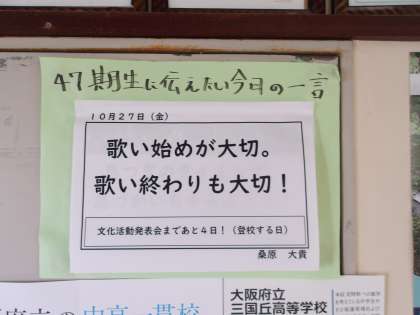 47期生に伝えたい今日の一言
10月27日(金)
歌い始めが大切。
歌い終わりも大切！
文化活動発表会まであと4日！（登校する日）
桑原　大貴
大阪府立
三国丘高等学校
の中高一貫校